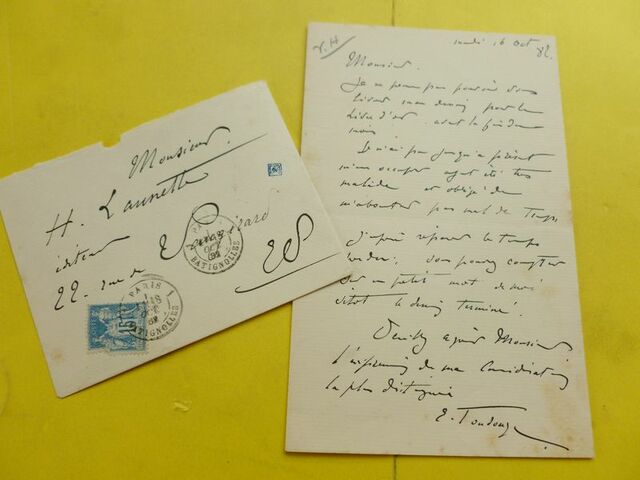 Monsieur
H. Launette
éditeur
22, rue de
PARIS
BATIGNOLLES
PARIS 1
BATIGNOLLES
15
V. H
16 Oct 82.
Monsieur.
Je ne pense pas pouvoir vous
livrer mon dessin pour le
Livre d'or avant la fin du
mois
Je n'ai pas jusqu'à présent
m'en occuper ayant été très
malade et obligé de
m'absenter pas mal de temps
J'espère réparer le temps
perdu; vous pouvez compter
sur un petit mot de moi
sitôt le dessin terminé!
Veuillez agréer Monsieur
l'expression de ma considération
la plus distinguée
E. Toudouze